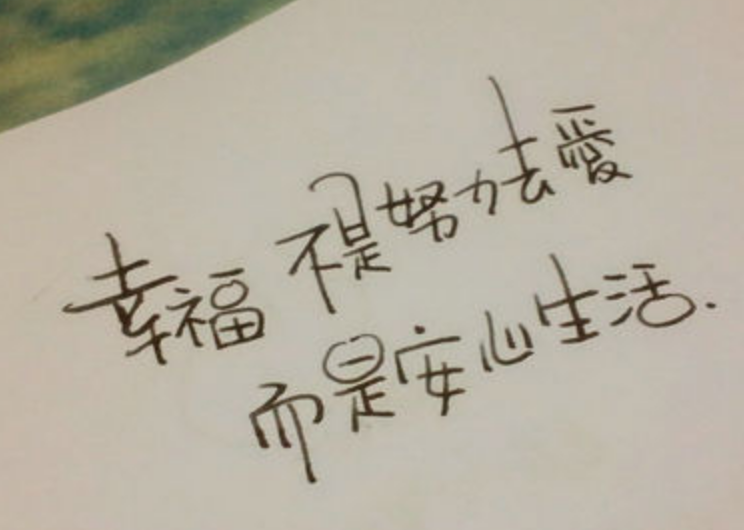 幸福不是努力去愛
而是安心生活.